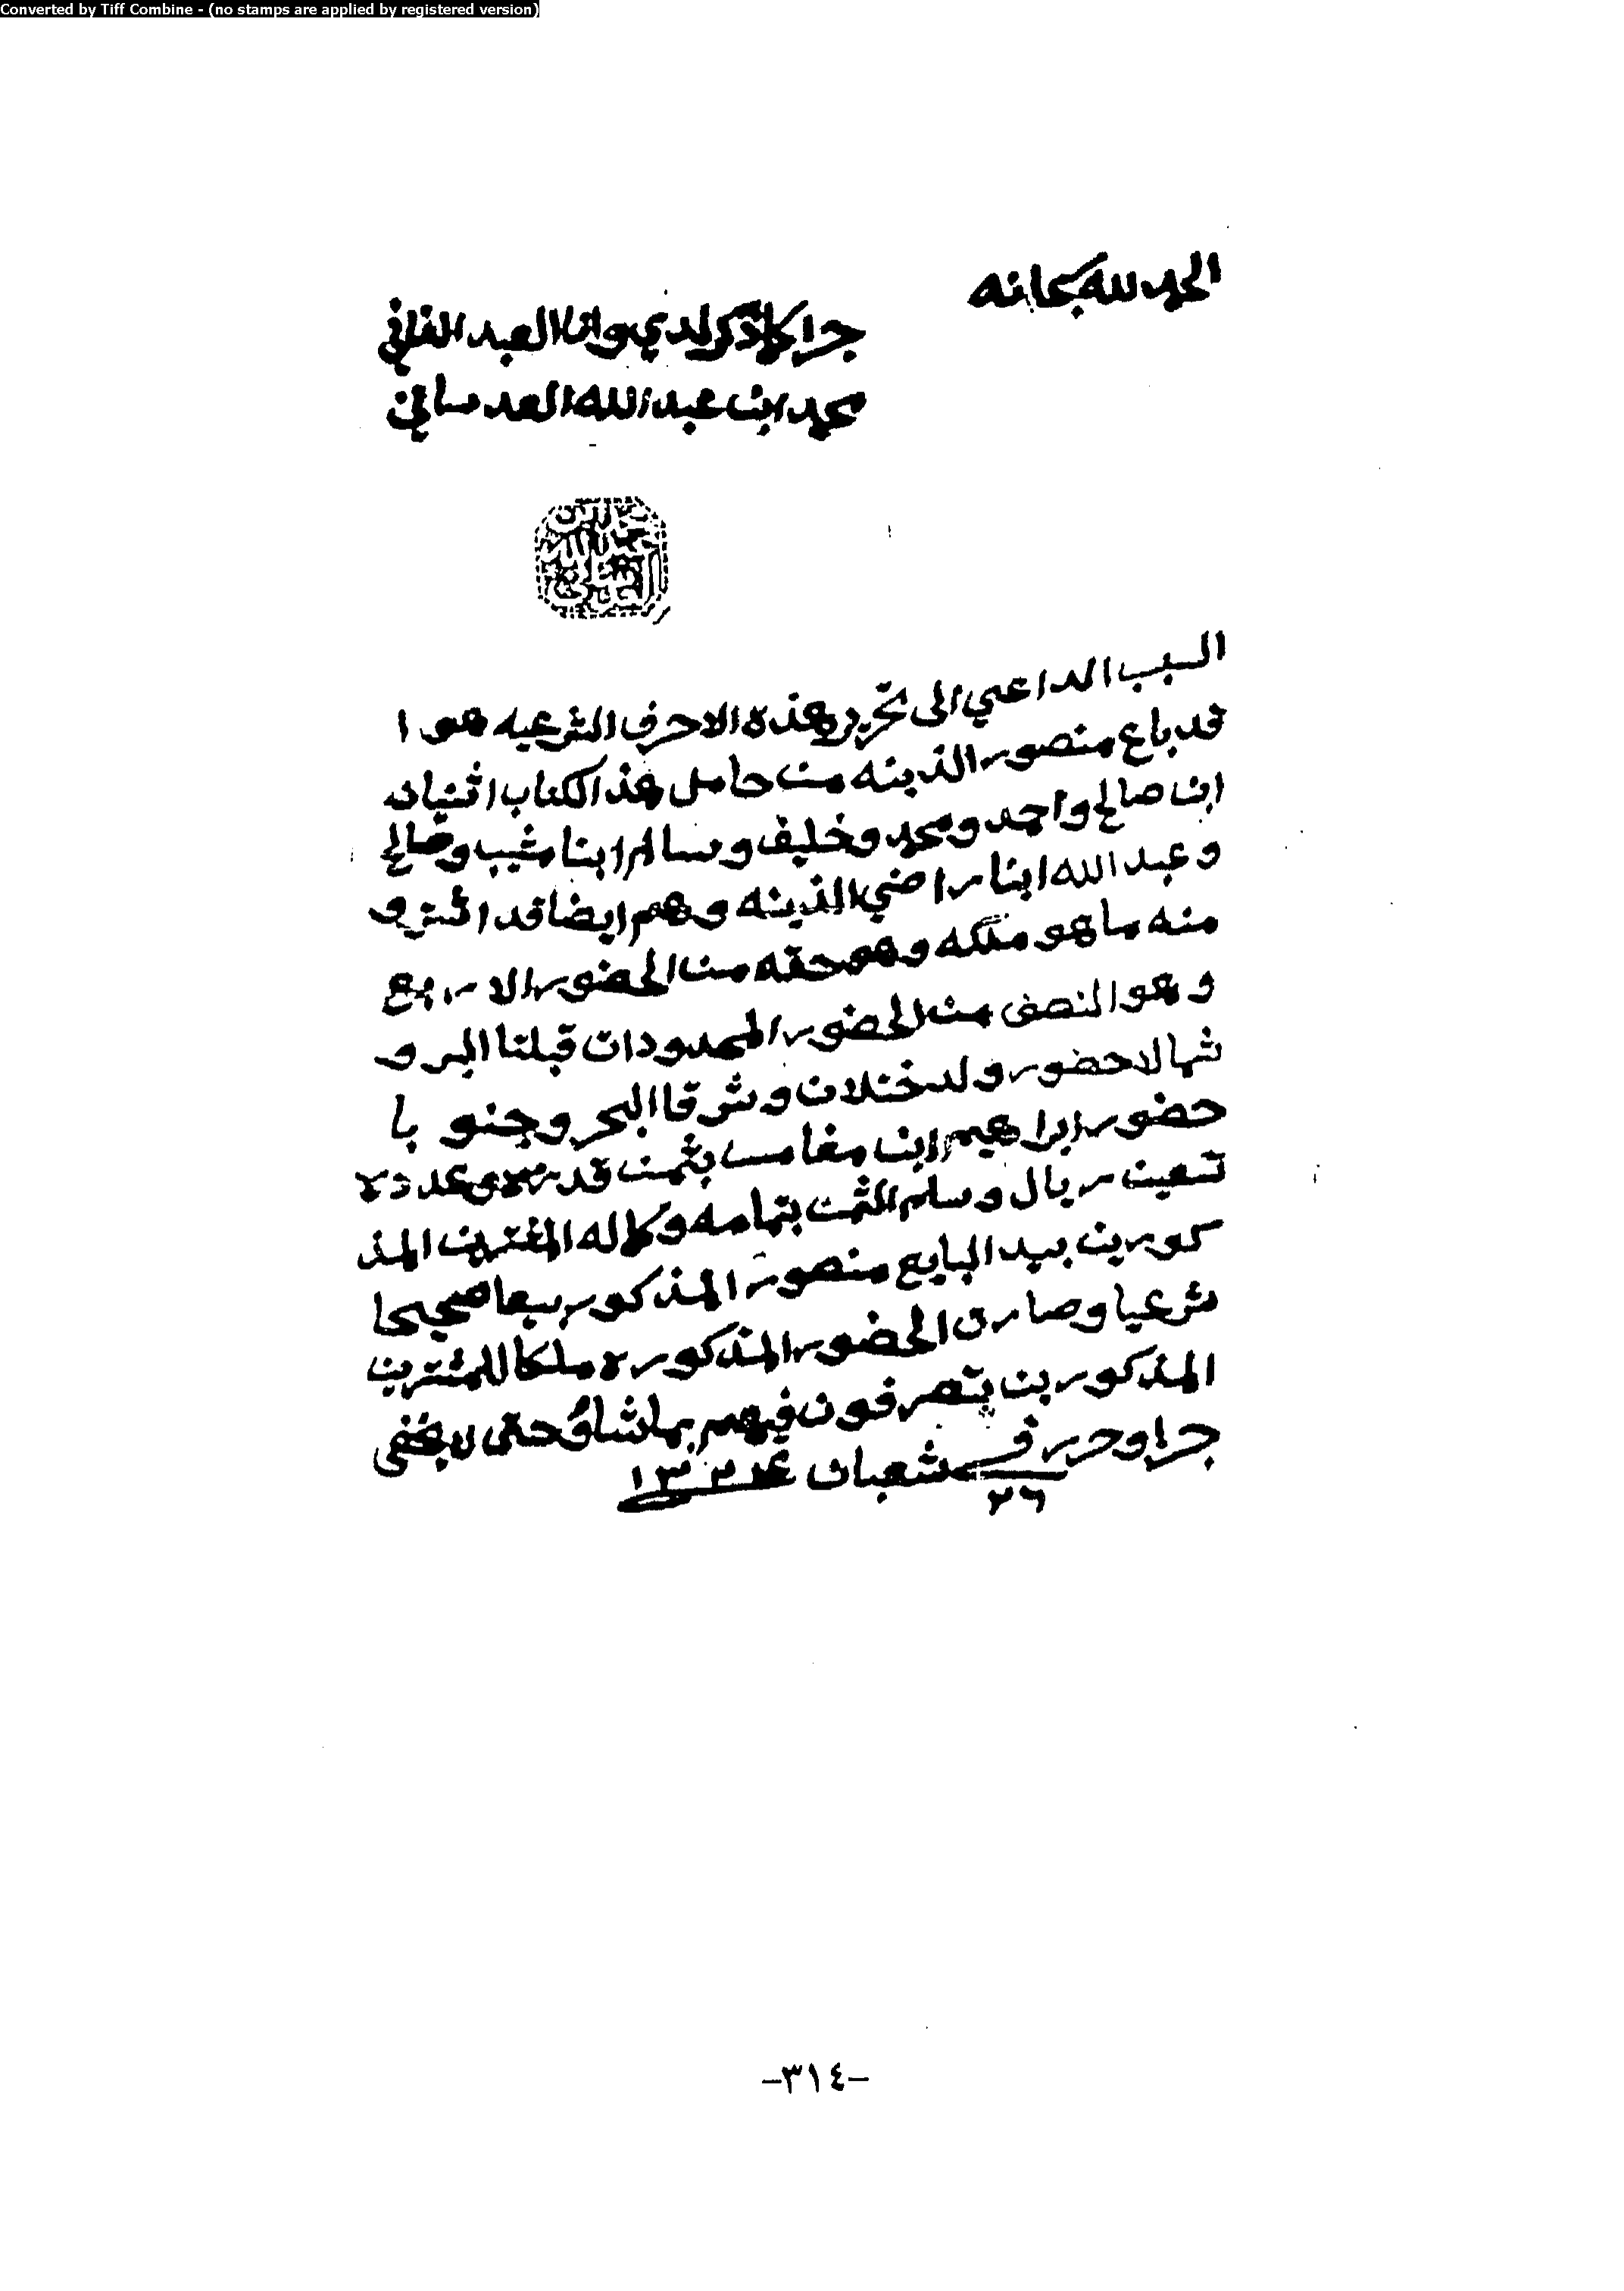 Converted by Tiff Combine - (no stamps are applied by registered version)
الحمد لله سبحانه
جرا كما ذكر لدي وانا العبد الفاني
محمد ابن عبدالله العدساني
السبب الداعي الى تحرير هذه الاحرف الشرعيه هو ا
قد باع منصور الذينه من حامل هذا الكتاب اثنيان
ابن صالح واحمد ومحمد وخليف وسالم ابنا شيب وصالح
وعبد الله ابنا راضي الذينه وهم ايضا قد اشترو
منه ما هو ملكه وهو حقه من الحضور الاربع
وهو النصف من الحضور المحدودات قبلتا البر و
شمالا حضور ولد ختلان وشرقا البحر وجنوبا
حضور ابراهيم ابن مغامس بثمن قدره وعدده
تسعين ريال وسلم الثمن بتمامه وكماله المشترين المذ
كورين بيد البايع منصور المذكور بيعا صحيحا
شرعيا وصارت الحضور المذكوره ملكا للمشترين
المذكورين يتصرفون فيهم بما شاؤ حتى لا يخفى
جرا وحرر في ٢٦ شعبان ١٣٣٤
-٣١٤-